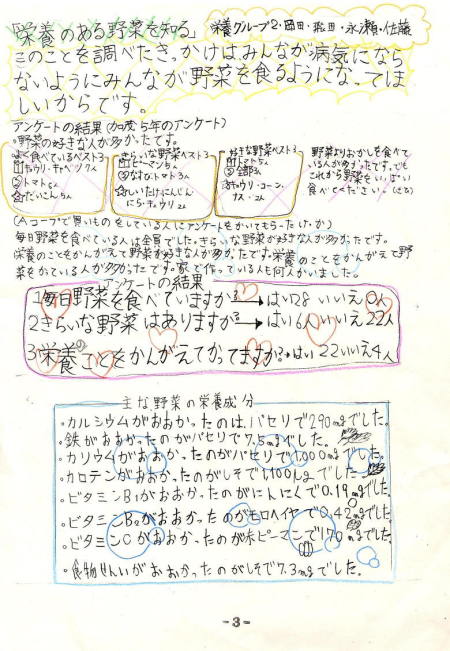 「栄養のある野菜を知る」
栄養グループ2・岡田・堀田・永瀬・佐藤
このことを調べたきっかけはみんなが病気になら
ないようにみんなが野菜を食るようになってほ
しいからです。
アンケートの結果(加茂5年のアンケート)
・野菜の好きな人が多かったです。
よく食べているベスト3
①キュウリ・キャベツ7人
②トマト6人
③だいこん5人
きらいな野菜ベスト3
①ピーマン5人
②なす・トマト3人
③しいたけにんじん
にら・キュウリ2人
好きな野菜ベスト3
①トマト5人
②全部3人
③キュウリ・コーン、
ナス・2人
野菜よりおかしを食べて
いる人が多かったです。でも
これから野菜をいっぱい
食べてください。
(Aコープで買いものをしている人にアンケートをかいてもらったけっか)
毎日野菜を食べている人は全員でした。きらいな野菜が好きな人が多かったです。
栄養のことをかんがえて野菜が好きな人が多かったです。栄養のことをかんがえて野
菜をかている人が多かったです。家で作っている人も何人かいました。
アンケートの結果
1毎日野菜を食べていますか?→はい28いいえ0人
2きらいな野菜はありますか?→はい6人いいえ22人
3栄養のことをかんがえてかってますか?→はい22いいえ4人
主な野菜の栄養成分
・カルシウムがおおかったのは、パセリで290mgでした。
・鉄がおおかったのがパセリで7.5mgでした。
・カリウムがおおかったのがパセリで1,000mgでした。
・カロテンがおおかったのがしそで11,100μgでした。
・ビタミンB1がおおかったのがにんにくで0.19mgでした。
・ビタミンB2がおおかったのがモロヘイヤで0.42mgでした。
・ビタミンCがおおかったのが赤ピーマンで170mgでした。
・食物せんいがおおかったのがしそで7.3mgでした。
-3-